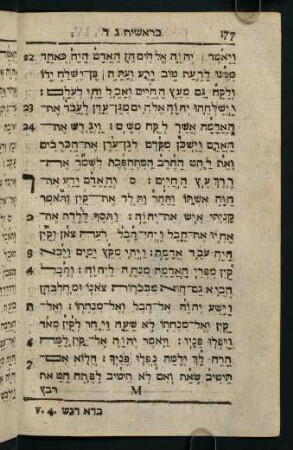 בראשית ג ד 177
22 ויאמר יהוה אלהים הן האדם היה כאחד
ממנו לדעת טוב ורע ועתה פן־ישלח ידו
ולקח גם מעץ החיים ואכל וחי לעלם:
23 וישלחהו יהוה אלהים מגן־עדן לעבד את־
24 האדמה אשר לקח משם: ויגרש את־
האדם וישכן מקדם לגן־עדן את־הכרבים
ואת להט החרב המתהפכת לשמר את־
דרך עץ החיים: ס והאדם ידע את־ ד
חוה אשתו ותהר ותלד את־קין ותאמר
2 קניתי איש את־יהוה: ותסף ללדת את־
אחיו את־הבל ויהי־הבל רעה צאן וקין
3 היה עבד אדמה: ויהי מקץ ימים ויבא
4 קין מפרי האדמה מנחה ליהוה: והבל
הביא גם־הוא מבכרות צאנו ומחלבהן
5 וישע יהוה אל־הבל ואל־מנחתו: ואל־
קין ואל־מנחתו לא שעה ויחר לקין מאד
6 ויפלו פניו: ויאמר יהוה אל־קין למה
7 חרה לך ולמה נפלו פניך: הלוא אם־
תיטיב שאת ואם לא תיטיב לפתח חטאת
M רבץ
V. 4. ברא